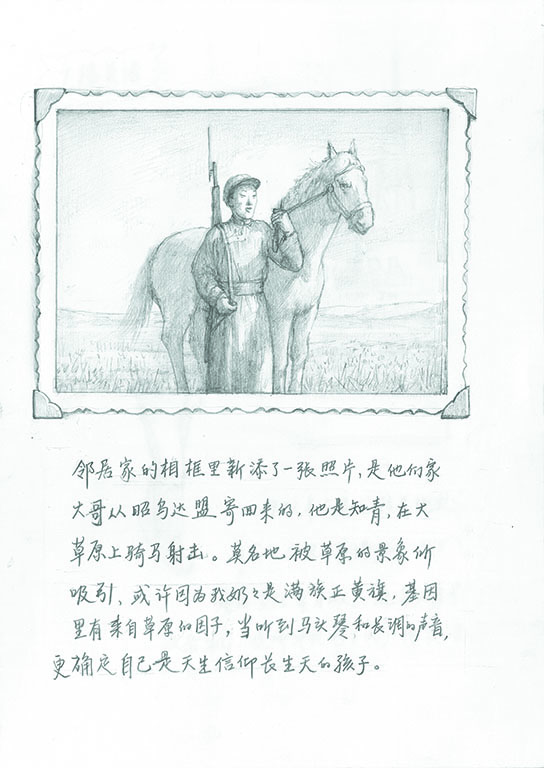 邻居家的相框里新添了一张照片，是他们家
大哥从昭乌达盟寄回来的，他是知青，在大
草原上骑马射击。莫名地被草原的景象所
吸引、或许因为我奶々是满族正黄旗，基因
里有来自草原的因子，当听到马头琴和长调的声音，
更确定自己是天生信仰长生天的孩子。